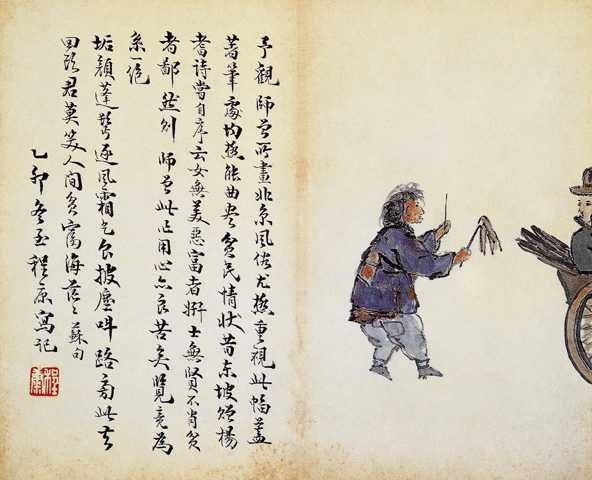 予觀師曾所畫北京風俗尤極重視此幅蓋
著筆處均極能曲盡貧民情狀昔東坡贈楊
耆詩嘗自序云女無美惡富者妍士無賢不肖貧
者鄙然則師曾此正用心亦良苦矣覽竟為
系一絕
垢顏蓬鬢逐風霜乞食披塵叫路旁此去
回頭君莫笑人間貧富海茫〻蘇句
乙卯冬至程康寫記
程康